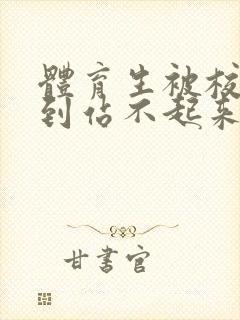 體育生被校
到佔不起來
甘書官